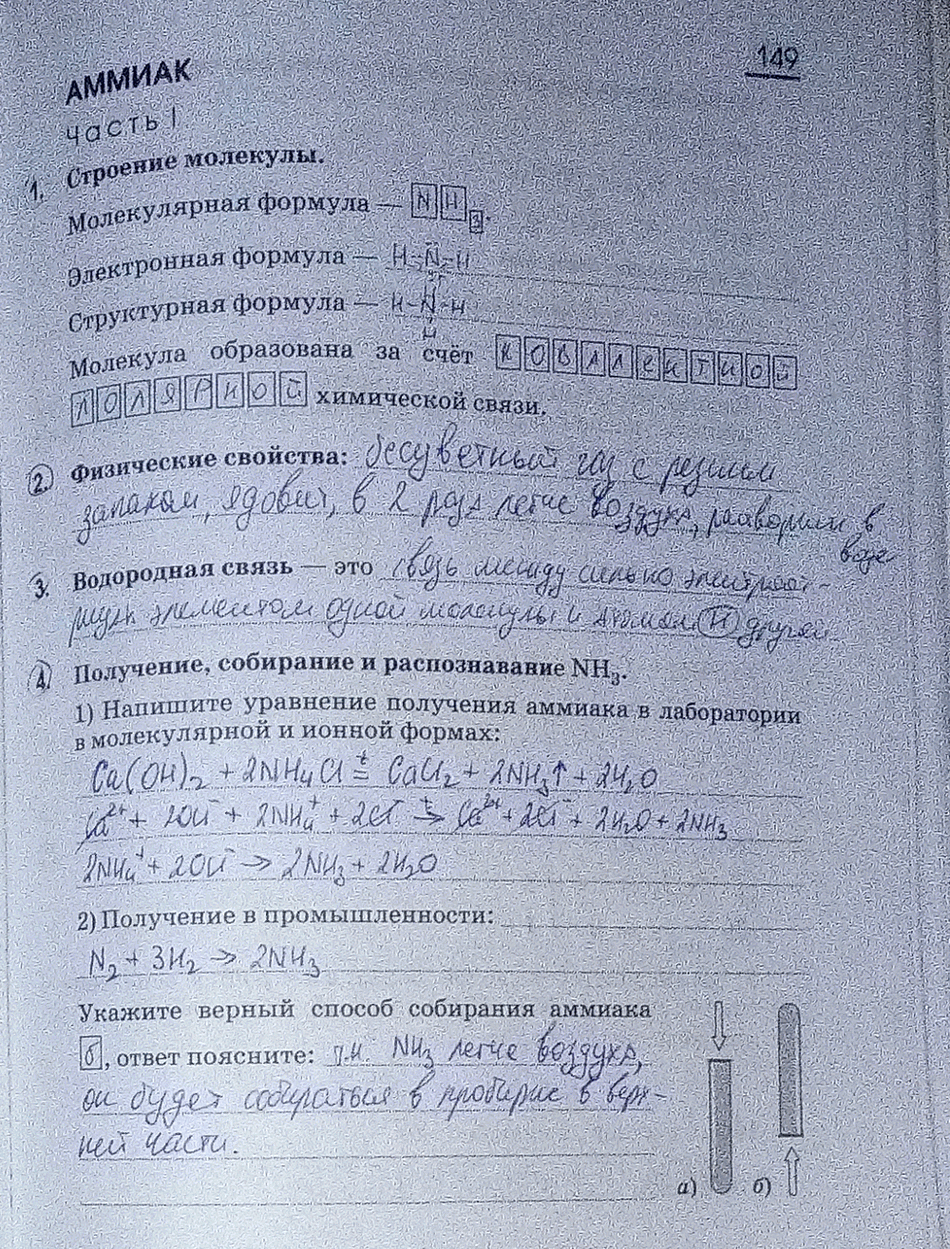 149
АММИАК
часть I
1. Строение молекулы.
Молекулярная формула — NH3.
Электронная формула — H–N–H
Структурная формула — H–N–H
H
Молекула образована за счёт КОВАЛЕНТНОЙ
ПОЛЯРНОЙ химической связи.
2. Физические свойства: бесцветный газ с резким
запахом, ядовит, в 2 раза легче воздуха, растворим в
воде
3. Водородная связь — это связь между сильно электроот-
элементом одной молекулы и атомом H другой
4. Получение, собирание и распознавание NH3.
1) Напишите уравнение получения аммиака в лаборатории
в молекулярной и ионной формах:
Ca(OH)2 + 2NH4Cl =t CaCl2 + 2NH3↑ + 2H2O
Ca2+ + 2OH- + 2NH4+ + 2Cl- t→ Ca2+ + 2Cl- + 2H2O + 2NH3
2NH4+ + 2OH- → 2NH3 + 2H2O
2) Получение в промышленности:
N2 + 3H2 → 2NH3
Укажите верный способ собирания аммиака
б, ответ поясните: т.к. NH3 легче воздуха,
он будет собираться в пробирке в верх-
ней части.
а) б)